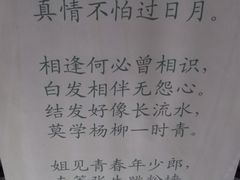 真情不怕过日月。
相逢何必曾相识，
白发相伴无怨心。
结发好像长流水，
莫学杨柳一时青。
姐见青春年少郎，